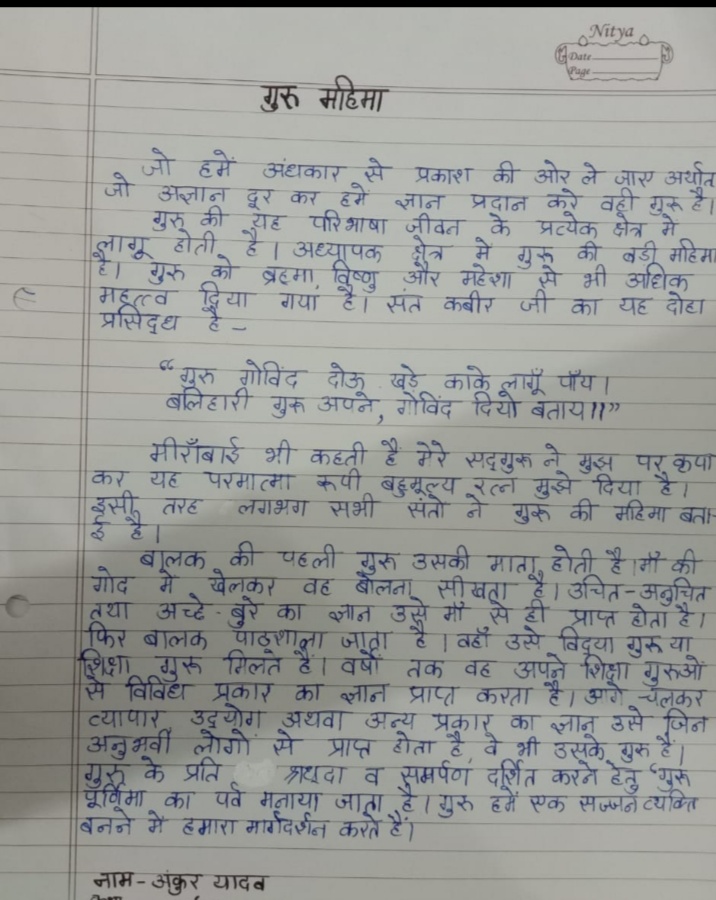 Nitya
Date
Page
गुरु महिमा
जो हमें अंधकार से प्रकाश की ओर ले जाए अर्थात
जो अज्ञान दूर कर हमें ज्ञान प्रदान करे वही गुरु है।
गुरु की यह परिभाषा जीवन के प्रत्येक क्षेत्र में
लागू होती है। अध्यापक क्षेत्र में गुरु की बडी महिमा
है। गुरु को ब्रहमा, विष्णु और महेश से भी अधिक
महत्त्व दिया गया है। संत कबीर जी का यह दोहा
प्रसिद्ध है –
“गुरु गोविंद दोऊ खड़े काके लागूँ पाँय।
बलिहारी गुरु अपने, गोविंद दियो बताय।।”
मीराँबाई भी कहती हैं मेरे सद्गुरु ने मुझ पर कृपा
कर यह परमात्मा रूपी बहुमूल्य रत्न मुझे दिया है।
इसी तरह लगभग सभी संतों ने गुरु की महिमा बता-
ई है।
बालक की पहली गुरु उसकी माता होती है। माँ की
गोद में खेलकर वह बोलना सीखता है। उचित-अनुचित
तथा अच्छे-बुरे का ज्ञान उसे माँ से ही प्राप्त होता है।
फिर बालक पाठशाला जाता है। वहाँ उसे विद्या गुरु या
शिक्षा गुरु मिलते हैं। वर्षों तक वह अपने शिक्षा गुरुओं
से विविध प्रकार का ज्ञान प्राप्त करता है। आगे चलकर
व्यापार उद्योग अथवा अन्य प्रकार का ज्ञान उसे जिन
अनुभवी लोगों से प्राप्त होता है, वे भी उसके गुरु हैं।
गुरु के प्रति श्रध्दा व समर्पण दर्शित करने हेतु ‘गुरु
पूर्णिमा का पर्व मनाया जाता है। गुरु हमें एक सज्जन व्यक्ति
बनने में हमारा मार्गदर्शन करते हैं।
नाम - अंकुर यादव